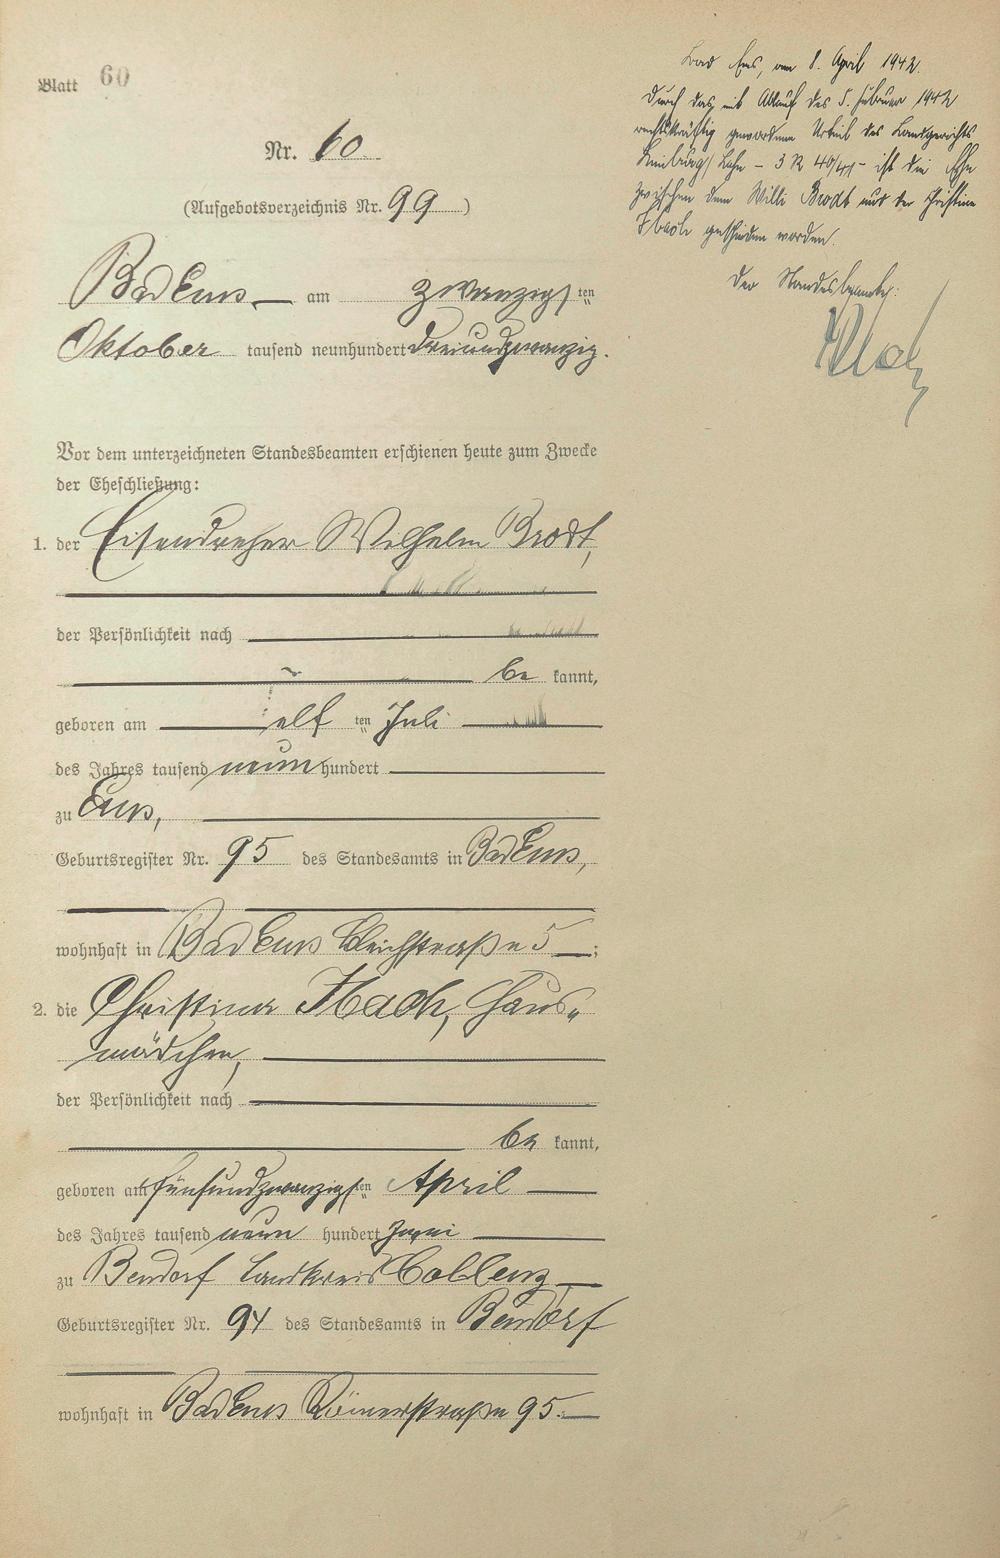 Blatt 60
Nr. 60
(Aufgebotsverzeichnis Nr. 99)
Bad Ems am zwanzigsten
Oktober tausend neunhundert dreiundzwanzig.
Vor dem unterzeichneten Standesbeamten erschienen heute zum Zwecke
der Eheschließung:
1. der Eisendreher Wilhelm Brodt,
der Persönlichkeit nach
be kannt,
geboren am elften Juli
des Jahres tausend neun hundert
zu Ems,
Geburtsregister Nr. 95 des Standesamts in Bad Ems,
wohnhaft in Bad Ems Bleichstraße 5;
2. die Christina Ibach, Haus-
mädchen,
der Persönlichkeit nach
be kannt,
geboren am fünfundzwanzigsten April
des Jahres tausend neun hundert zwei
zu Bendorf Landkreis Coblenz
Geburtsregister Nr. 94 des Standesamts in Bendorf
wohnhaft in Bad Ems Römerstraße 95.
Bad Ems, am 8. April 1942.
Durch das mit Ablauf des 5. Februar 1942
rechtskräftig gewordene Urteil des Landgerichts
Limburg/Lahn - 3 R 40/41 - ist die Ehe
zwischen dem Willi Brodt und der Christine
Ibach geschieden worden.
Der Standesbeamte: